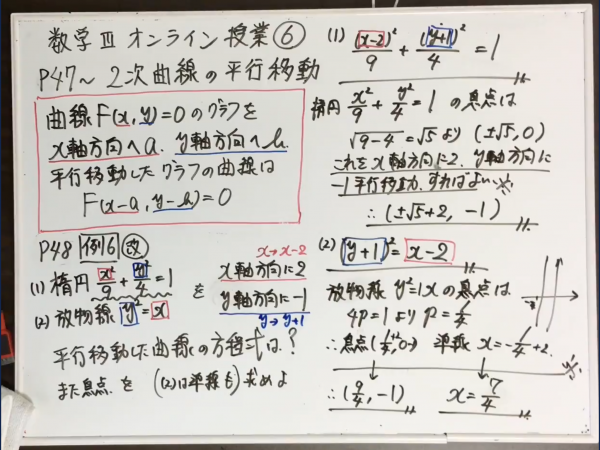 数学Ⅲ オンライン授業⑥
P47～ 2次曲線の平行移動
曲線F(x,y)=0のグラフを
x軸方向へa. y軸方向へb.
平行移動したグラフの曲線は
F(x-a,y-b)=0
P48 例6 改
x→x-2
(1) 楕円 x²/9 + y²/4 = 1 を x軸方向に2
(2) 放物線 y²=x y軸方向に-1
y→y+1
平行移動した曲線の方程式は?
また焦点を ((2)は準線も) 求めよ
(1) (x-2)²/9 + (y+1)²/4 = 1
楕円 x²/9 + y²/4 = 1 の焦点は
√9-4=√5より (±√5,0)
これをx軸方向に2. y軸方向に
-1平行移動すればよい
∴(±√5+2, -1)
(2) (y+1)²=x-2
放物線 y²=1xの焦点は
4P=1より P=1/4
∴焦点(1/4,0) 準線 x=-1/4+2
∴(9/4,-1) x=7/4